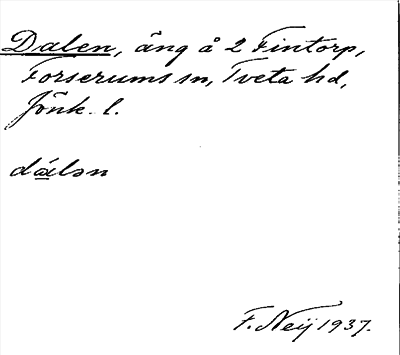 Dalen, äng å 2 Fintorp,
Forserums sn, Tveta hd,
Jönk. l.
dálən
F. Neij 1937.